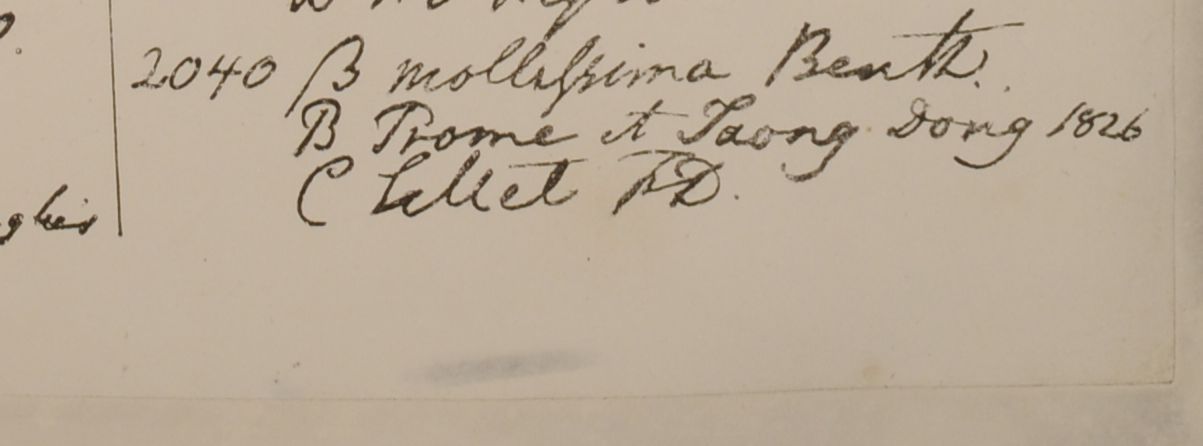 2040 B mollissima Benth.
B Prome et Taong Dong 1826
C Sillet FD.